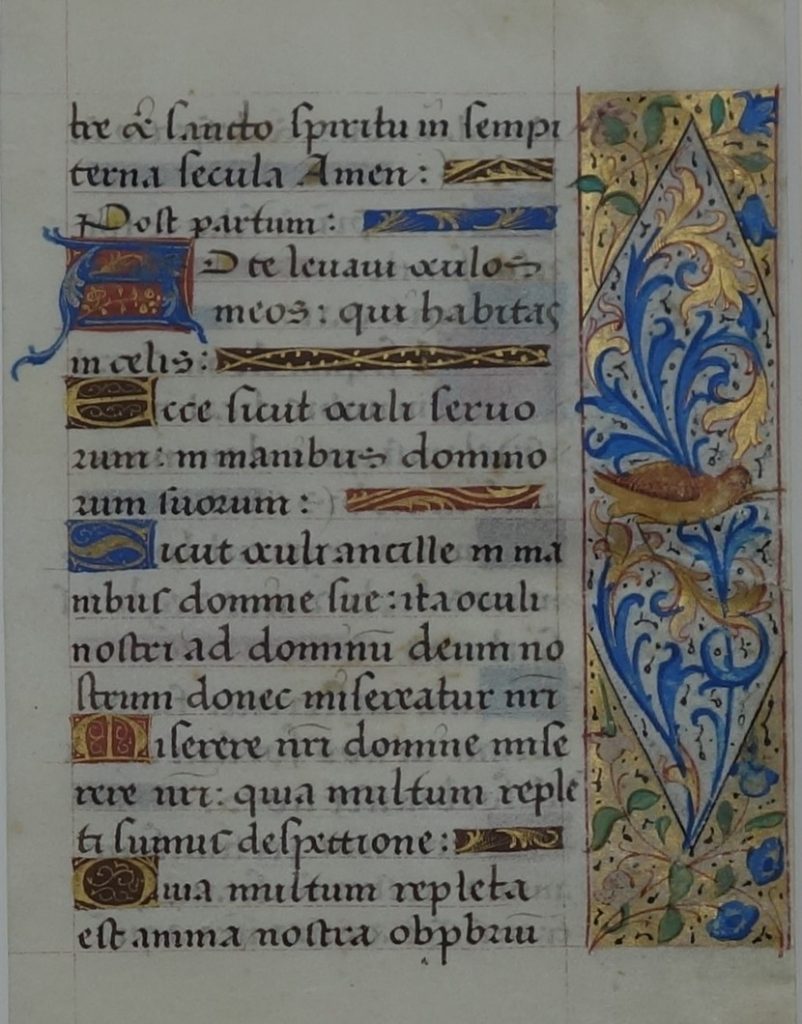 tre & sancto spiritu in sempi
terna secula Amen:
Post partum:
AD te levavi oculos
meos: qui habitas
in celis:
Ecce sicut oculi servo
rum: in manibus domino
rum suorum:
Sicut oculi ancille in ma
nibus domine sue: ita oculi
nostri ad dominū deum no
strum donec misereatur nr̄i
Miserere nr̄i domine mise
rere nr̄i: quia multum reple
ti sumus despectione:
Quia multum repleta
est anima nostra obpbriū